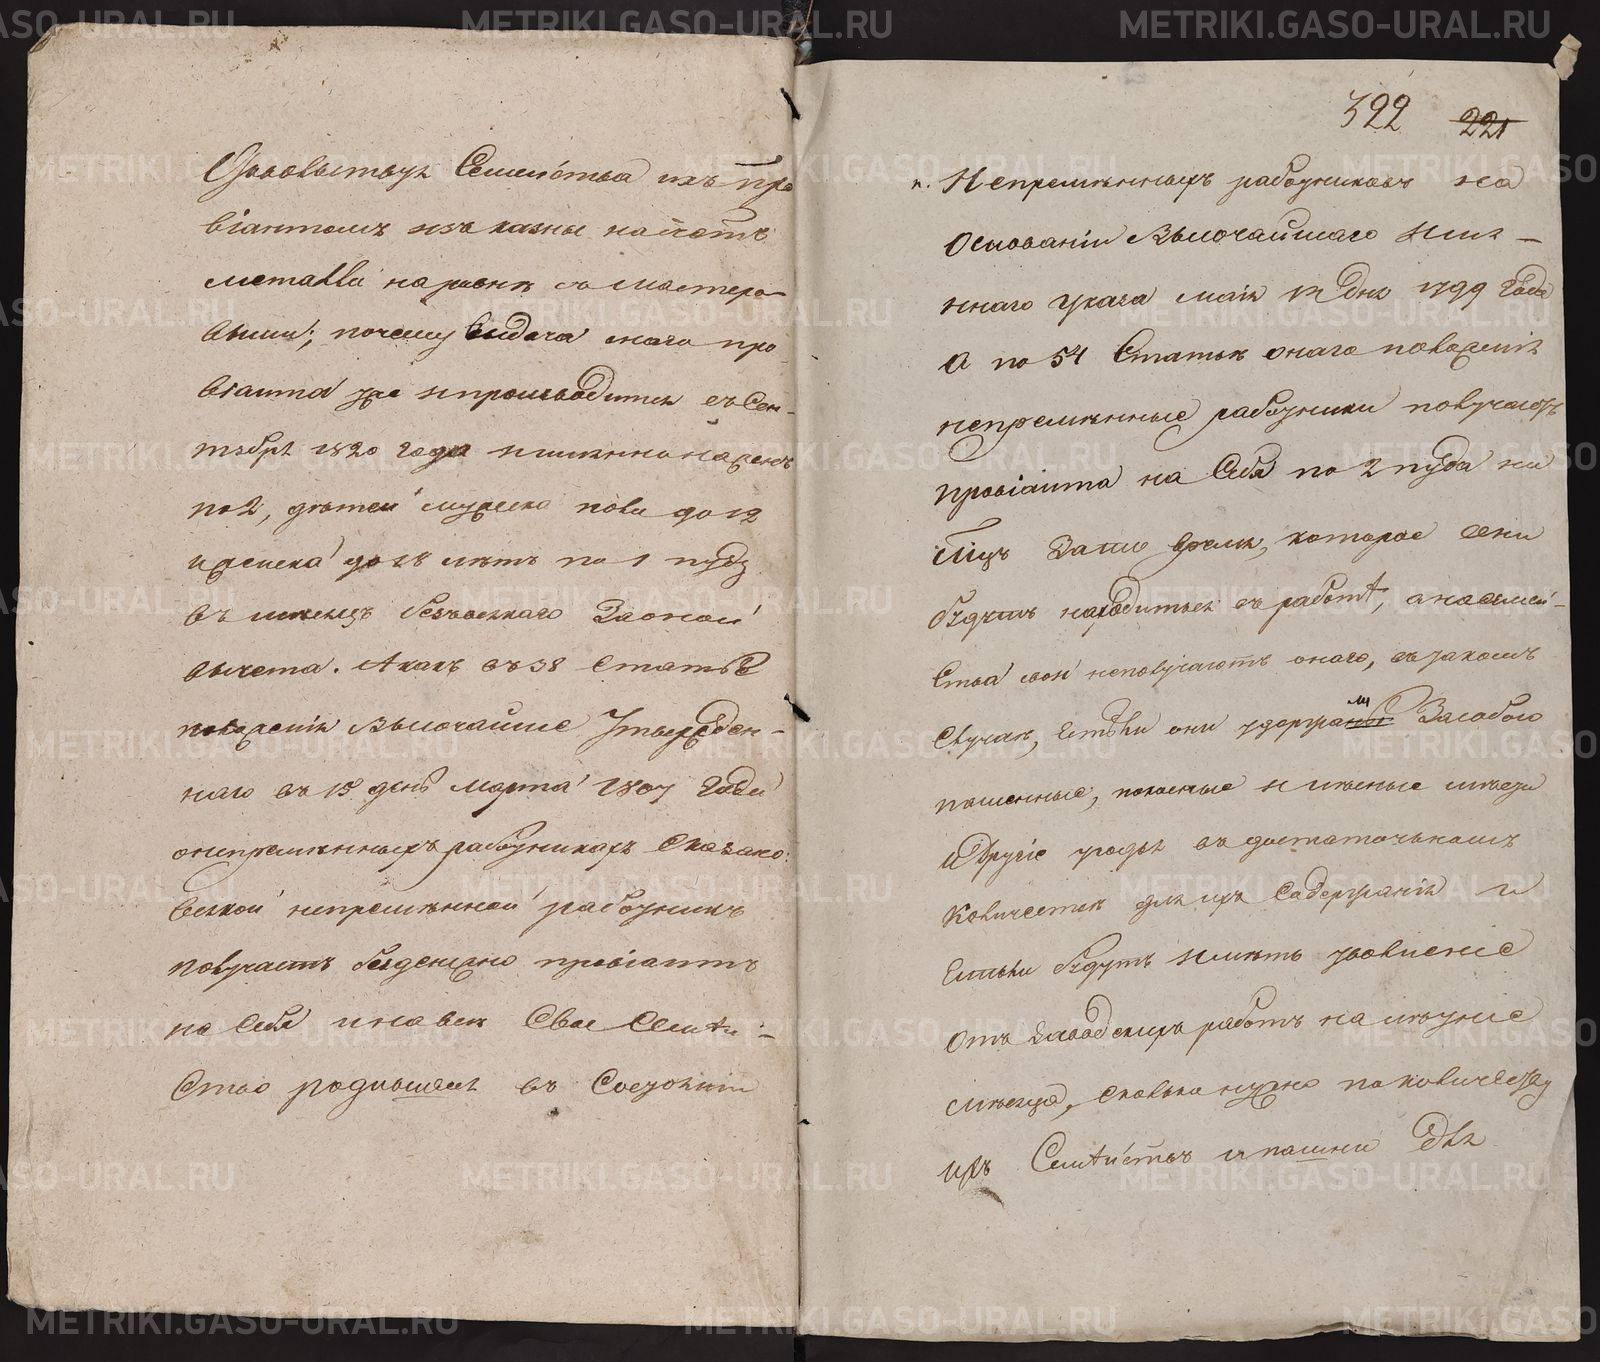 Удовольствуя Семейства ихъ про
віантомъ изъ казны на счетъ
металла наравнѣ съ мастеро-
выми; почему выдача онаго про
віанта уже и производится съ Сен-
тября 1820 года и именно на женъ
по 2, дѣтей мужеска пола до 12
и женска до 18 лѣтъ по 1 пуду
въ мѣсяцъ безъ всякаго за оной
вычета. А какъ въ 38 Статьѣ
положенія Высочайше Утвержден-
наго въ 15 день Марта 1807 года
о непремѣнныхъ работникахъ Сказано:
всякой непремѣнной работникъ
получаетъ безденежно провіантъ
на Себя и на все Свое Семѣй-
Ство родившееся въ Сословіи
322 221
Непремѣнныхъ работниковъ на
Основаніи Высочайшаго Имя-
ннаго Указа маія дня 1799 Года
А по 54 Статьѣ онаго положенія
непремѣнные работники получаютъ
провіанта на Себя по 2 пуда на
мѣсяцъ За то время, которое они
будутъ находиться въ работѣ, а на Семей-
Ства свои неполучаютъ онаго, въ такомъ
Случаѣ, Естьли они удержали За собою
пашенные, покосные и лѣсные мѣста
и Другіе угодья въ достаточномъ
Количествѣ для ихъ Содержанія и
Естьли будутъ имѣть увольненіе
Отъ Заводскихъ работъ на лѣтніе
мѣсяца, сколько нужно по количеству
ихъ Семѣйствъ и пашни Для
METRIKI.GASO-URAL.RU